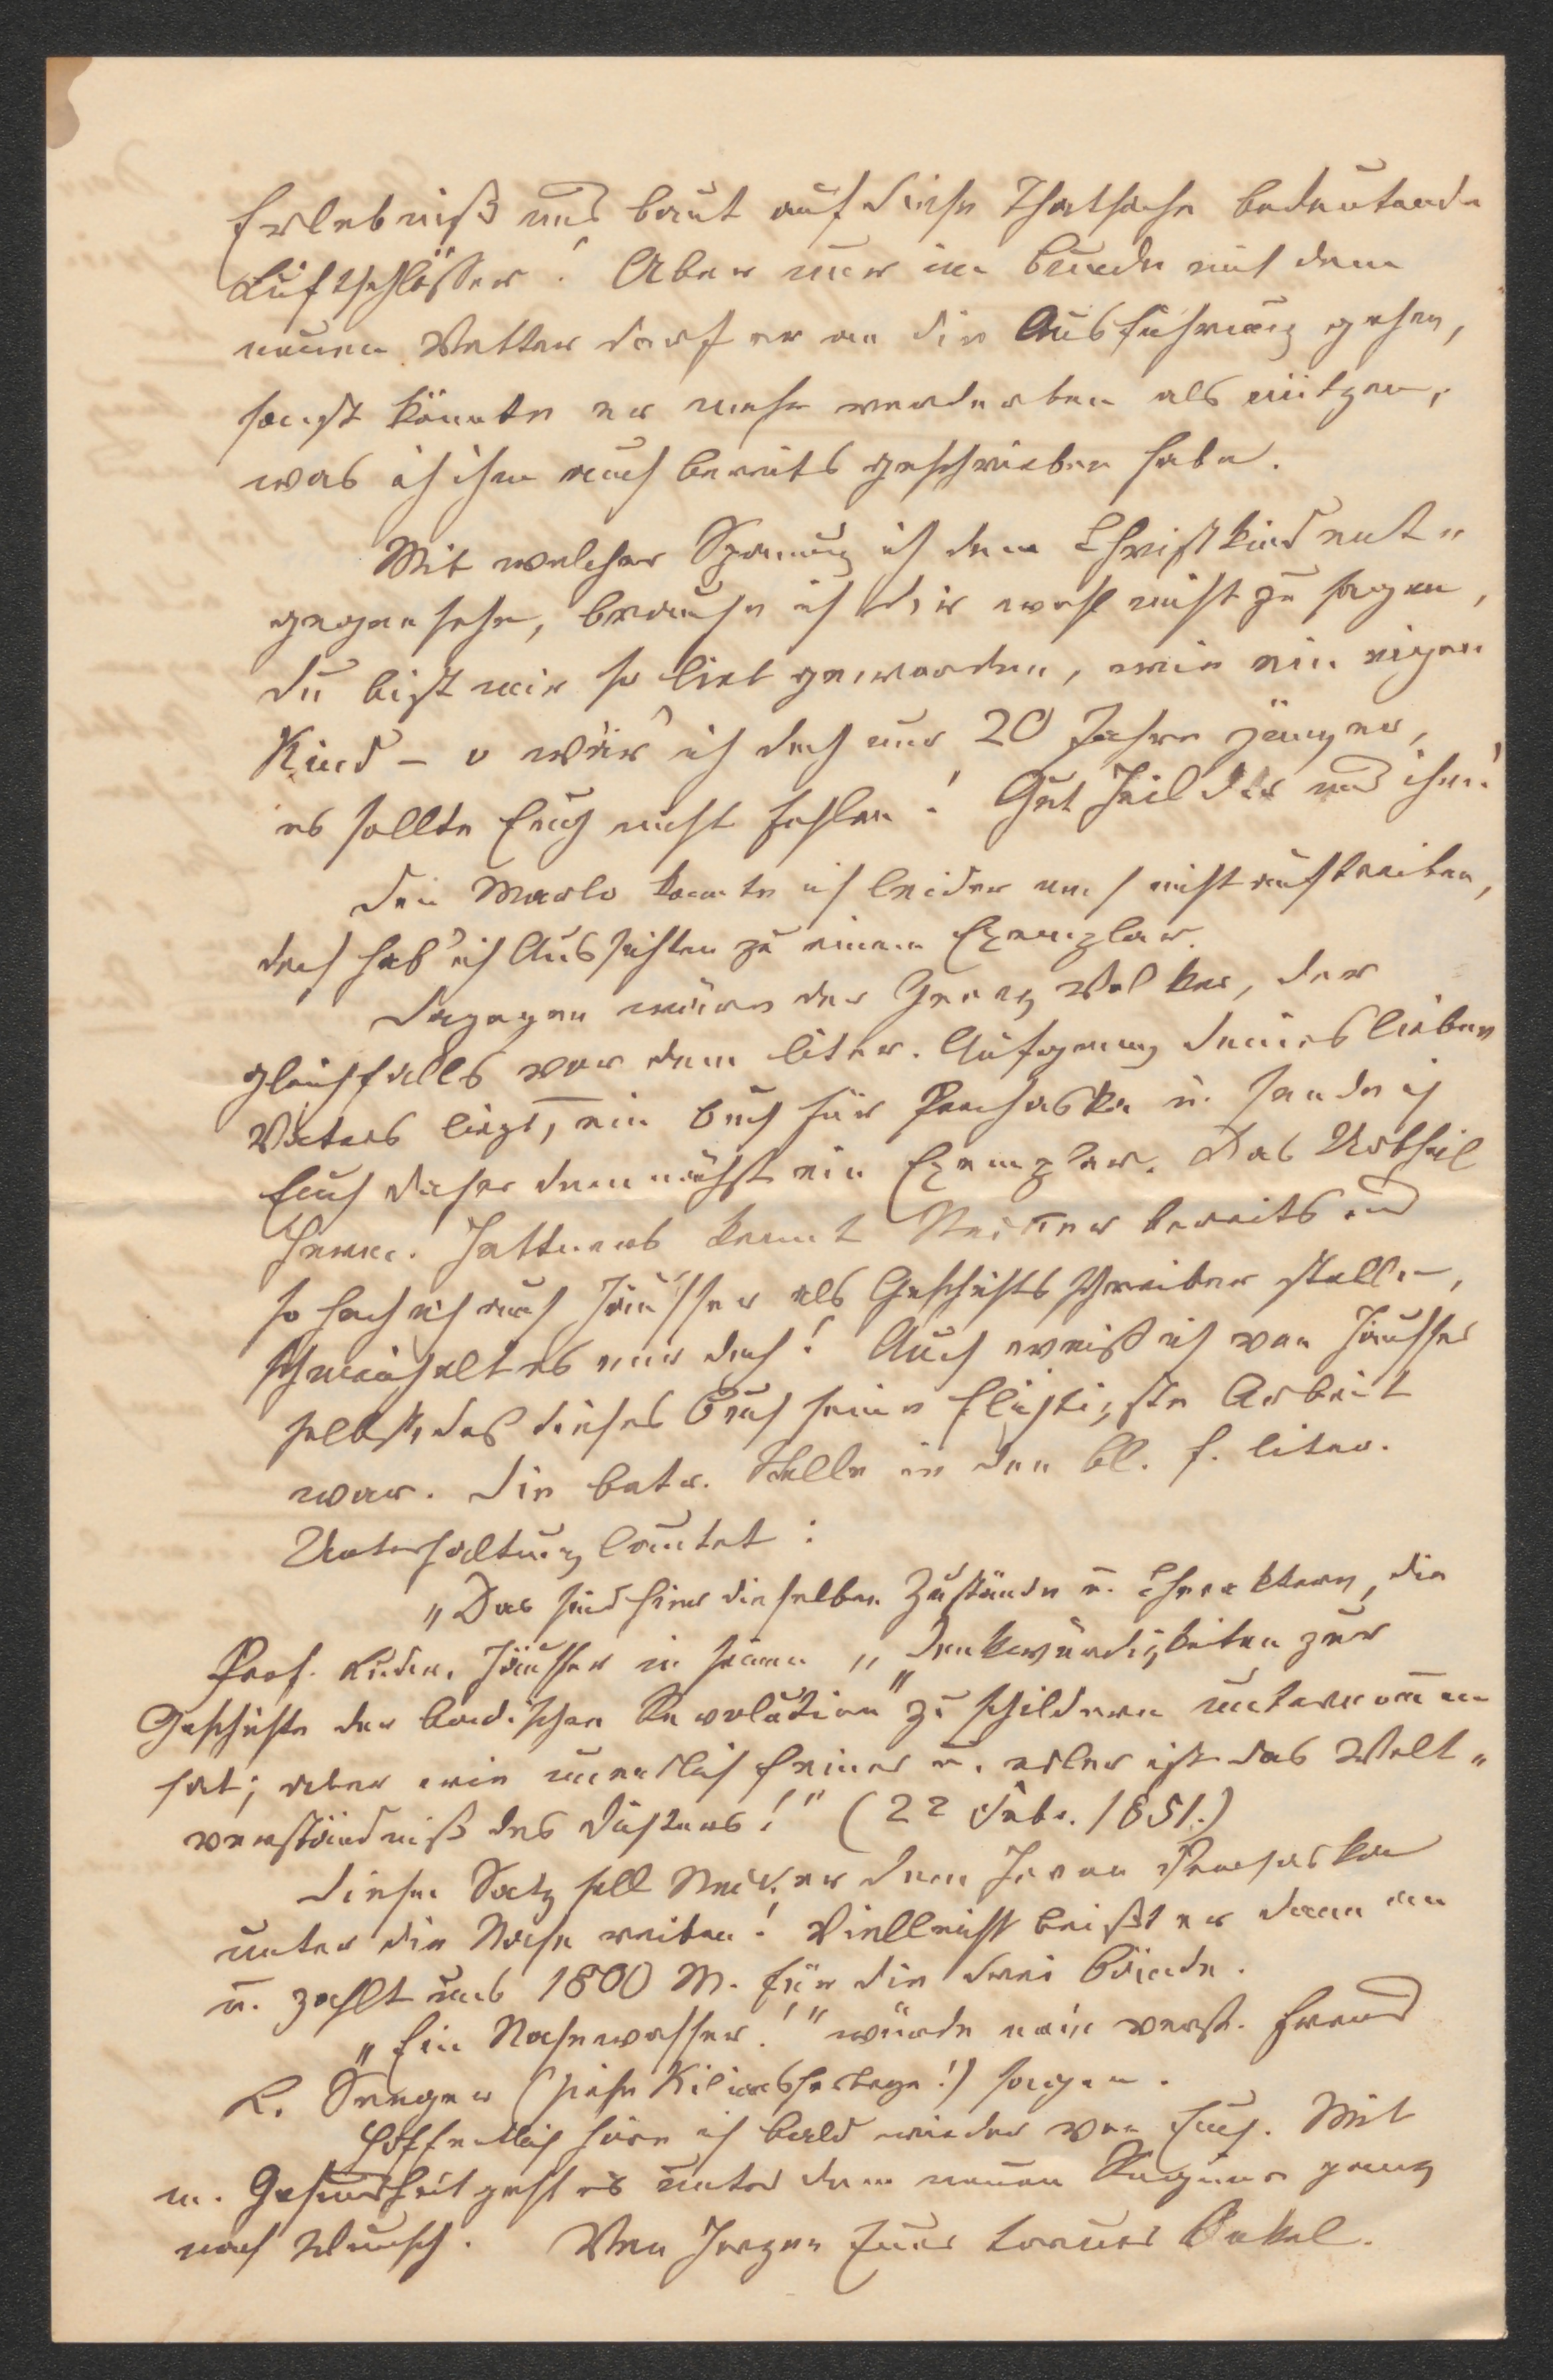 Erlebniß und baut auf diese Thatsache bedeutende
Luftschlösser! Aber nur im Bunde mit dem
neuen Vetter darf er an die Ausführung gehen,
sonst könnte er mehr verderben als nützen,
was ich ihm auch bereits geschrieben habe.
Mit welcher Spannung ich dem Christkind ent-
gegensehe, brauche ich dir wohl nicht zu sagen,
du bist mir so lieb geworden, wie ein eigen
Kind – o wär' ich doch nur 20 Jahre jünger,
es sollte Euch nicht fehlen! Gut Heil dir und ihm!
Den Marlo konnte ich leider noch nicht auftreiben,
doch hab' ich Aussichten zu einem Exemplar.
Dagegen wäre der Georg Volker, der
gleichfalls vor dem liter. Aufgang deines lieben
Vaters liegt, ein Buch für Prochaska u. sende ich
Euch daher demnächst ein Exemplar. Das Urtheil
Herm. Hettners kennt Necker bereits und
so hoch ich auch Häusser als Geschichtsschreiber stelle,
schmeichelt es mir doch! Auch weiß ich von Häusser
selbst, daß dieses Buch seine flüchtigste Arbeit
war. Die betr. Stelle in den Bl. f. liter.
Unterhaltung lautet:
„Das sind hier dieselben Zustände u. Charaktere, die
Prof. Ludw. Häusser in seinen „Denkwürdigkeiten zur
Geschichte der badischen Revolution" zu schildern unternommen
hat; aber wie unendlich feiner u. edler ist das Welt-
verständniß des Dichters!" (22 Febr. 1851.)
Diesen Satz soll Necker dem Herrn Prochaska
unter die Nase reiben! Vielleicht beißt er dann an
u. zahlt uns 1800 M. für die drei Bände.
„Ein Nasewasser!" würde mein verst. Freund
L. Seeger (siehe Kiliansherberge!) sagen.
Hoffentlich höre ich bald wieder von Euch. Mit
m. Gesundheit geht es unter dem neuen Regime ganz
nach Wunsch. Von Herzen Euer treuer Onkel.